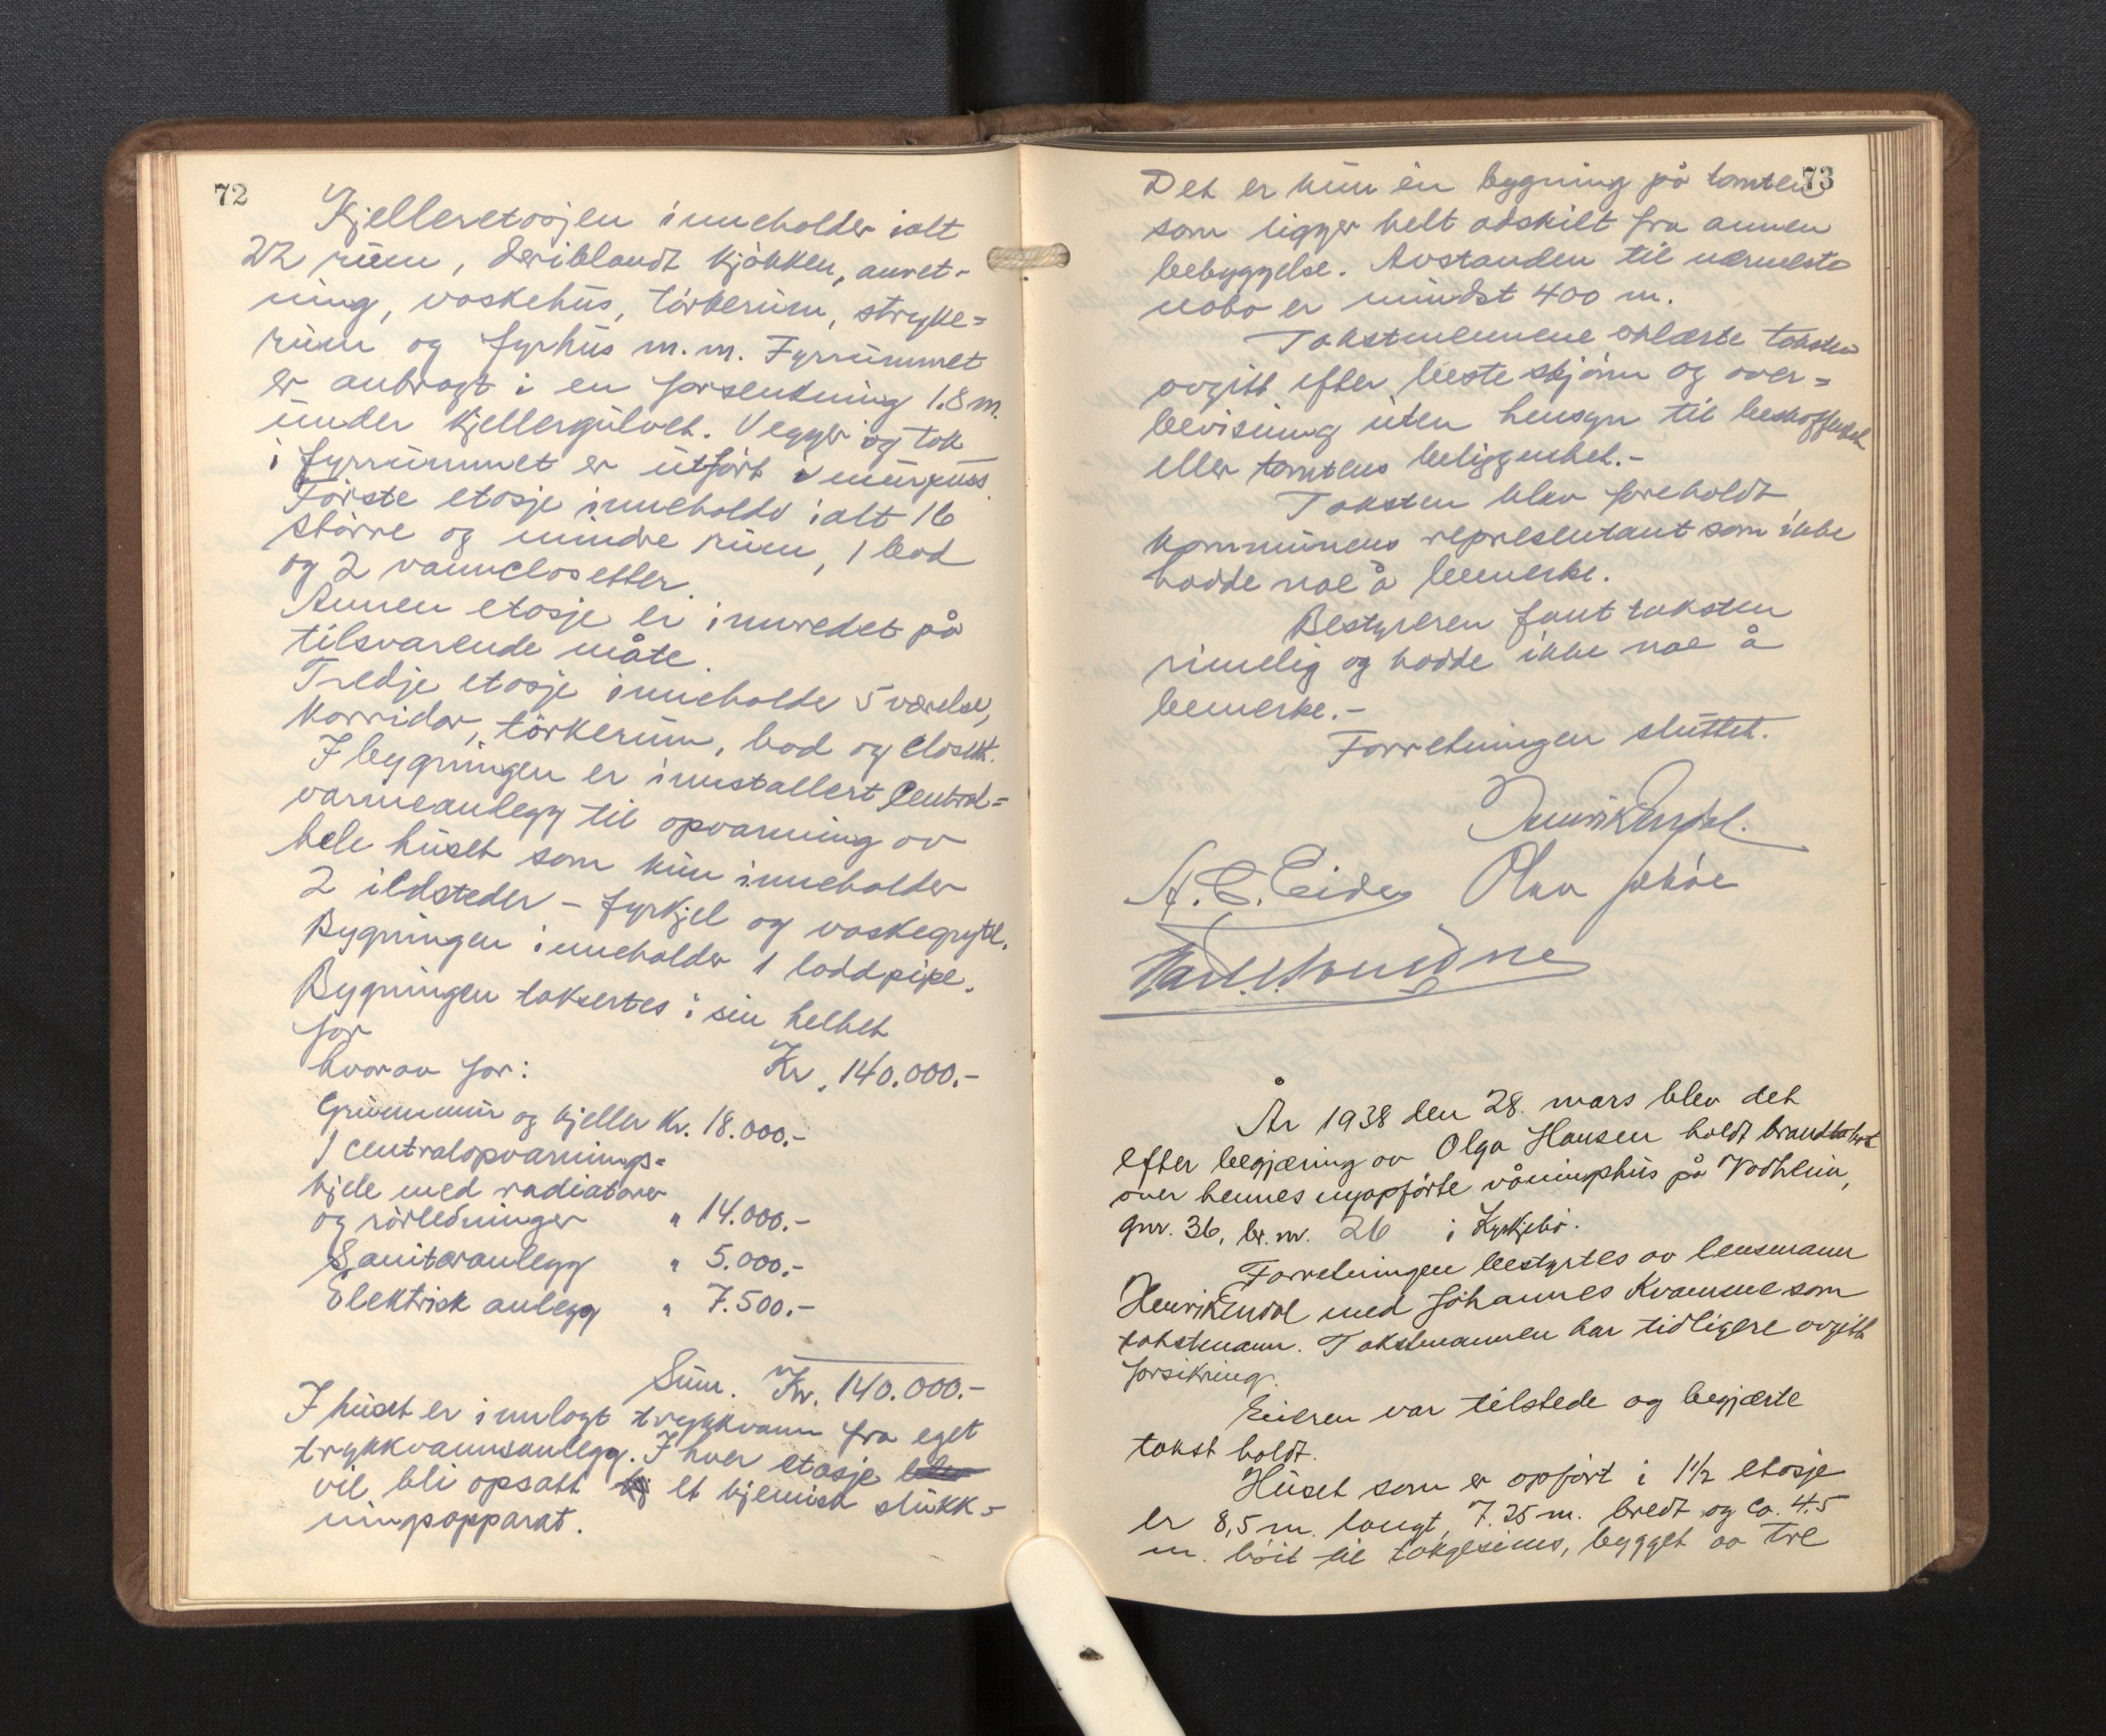 72
Kjelleretasjen inneholder ialt
22 rum, deriblandt kjøkken, anret-
ning, vaskehus, tørkerum, stryke=
rum og fyrhus m.m. Fyrrummet
er anbragt i en forsenkning 1.8 m.
under kjellergulvet. Vegger og tak
i fyrrummet er utført i murpuss.
Første etasje inneholdr ialt 16
større og mindre rum, 1 bad
og 2 vannclosetter.
Annen etasje er innredet på
tilsvarende måte.
Tredje etasje inneholder 5 værelser,
korridor, tørkerum, bad og closett.
I bygningen er innstallert Central=
varmeanlegg til opvarming av
hele huset som kun inneholder
2 ildsteder – fyrkjel og vaskegryte.
Bygningen inneholder 1 loddpipe.
Bygningen taksertes i sin helhet
for
Kr. 140.000.-
hvorav for:
Grunnmur og kjeller Kr. 18.000.-
1 centralopvarmings=
kjele med radiatorer
og rørledninger " 14.000.-
Sanitæranlegg " 5.000.-
Elektrisk anlegg " 7.500.-
Sum. Kr. 140.000.-
I huset er innlagt trykkvann fra eget
trykkvannsanlegg. I hver etasje
vil bli opsatt et kjemisk slukk-
ningsapparat.
73
Det er kun én bygning på tomten
som ligger helt adskilt fra annen
bebyggelse. Avstanden til nærmeste
nabo er mindst 400 m.
Takstmennene erklærte taksten
avgitt efter beste skjønn og over=
bevisning uten hensyn til beskaffenhet
eller tomtens beliggenhet.-
Taksten blev foreholdt
kommunens representant som ikke
hadde noe å bemerke.
Bestyreren fant taksten
rimelig og hadde ikke noe å
bemerke.-
Forretningen sluttet.
Henrik Endal.
A. C. Eide Olav
År 1938 den 28. mars blev det
efter begjæring av Olga Hansen holdt brandtakst
over hennes nyopførte våningshus på Vadheim,
gnr. 36, br. nr. 26 i Kyrkjebø.
Forretningen bestyrtes av lensmann
Henrik Endal med Johannes Kvamme som
takstmann. Takstmannen har tidligere avgitt
forsikring.
Eieren var tilstede og begjærte
takst holdt.
Huset som er opført i 1 1/2 etasje
er 8,5 m. langt, 7.25 m. bredt og ca. 4.5
m. høit til takgesims, bygget av tre